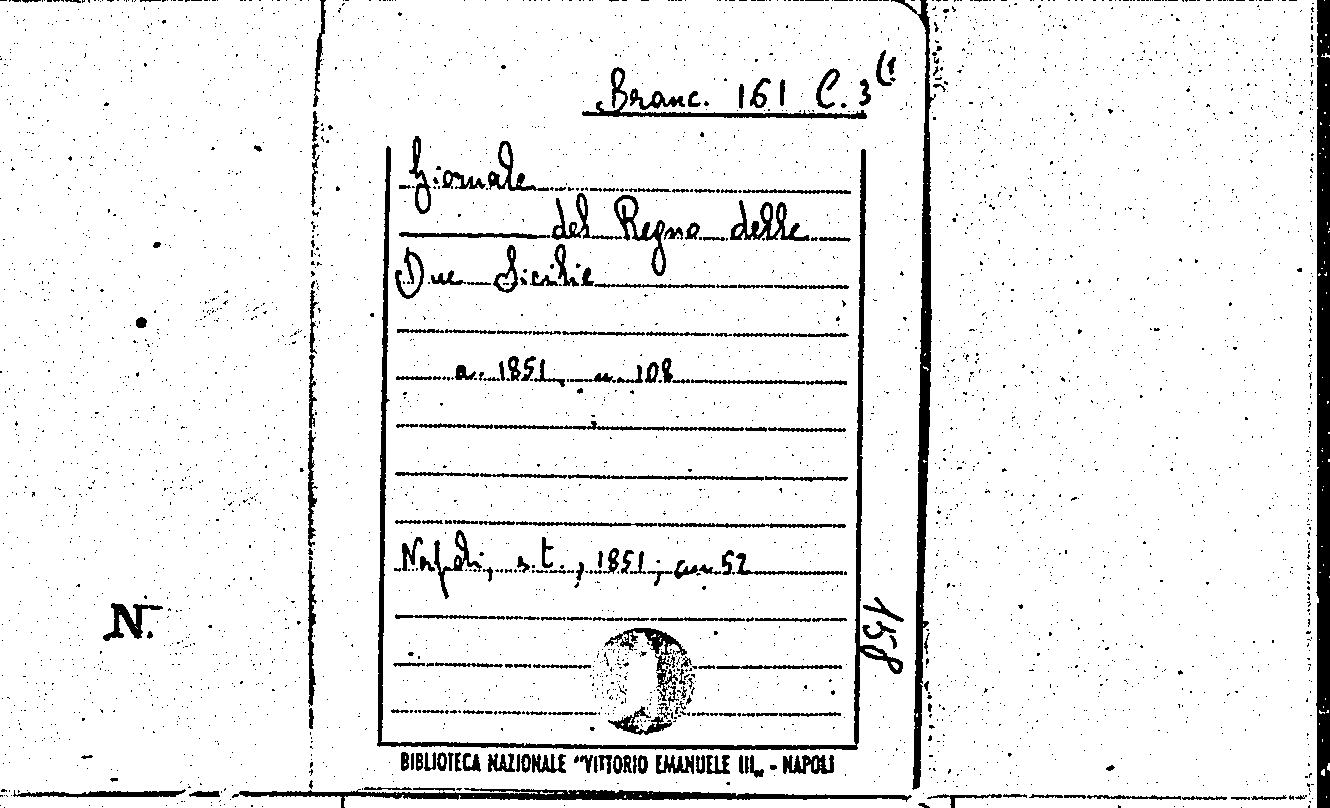 Branc. 161 C. 3(1
Giornale
del Regno delle
Due Sicilie
a. 1851, n. 108
Napoli, s.t., 1851; cm 52
N.
158
BIBLIOTECA NAZIONALE "VITTORIO EMANUELE III„ - NAPOLI